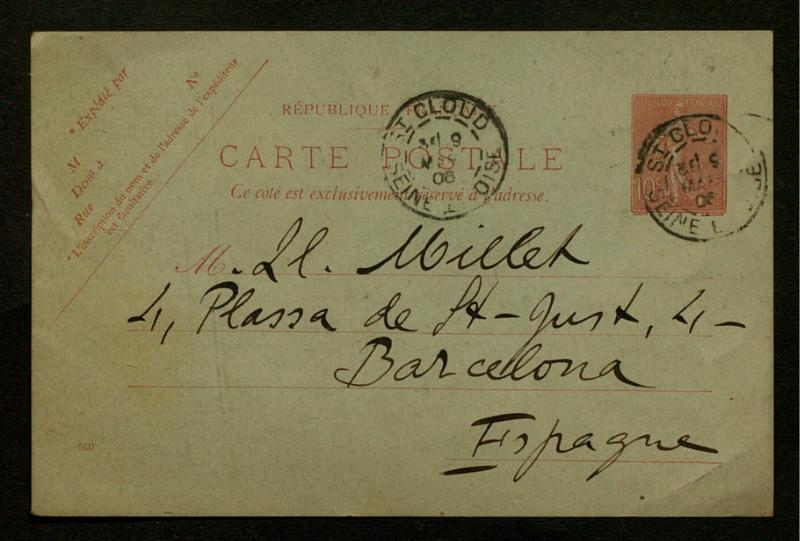 * Expédié par
M
Demt à
Rue
No
* L'inscription du nom et de l'adresse de l'expéditeur
est facultative.
RÉPUBLIQUE F E
CARTE POSTALE
Ce côté est exclusivement réservé à l'adresse.
ST CLOUD
9
06
SEINE ET OISE
RÉPUBLIQUE FRANÇAISE
10
ST CLO
9
MAI
06
SEINE E OISE
M. Ll. Millet
4, Plassa de St-Just, 4-
Barcelona
Espagne
510